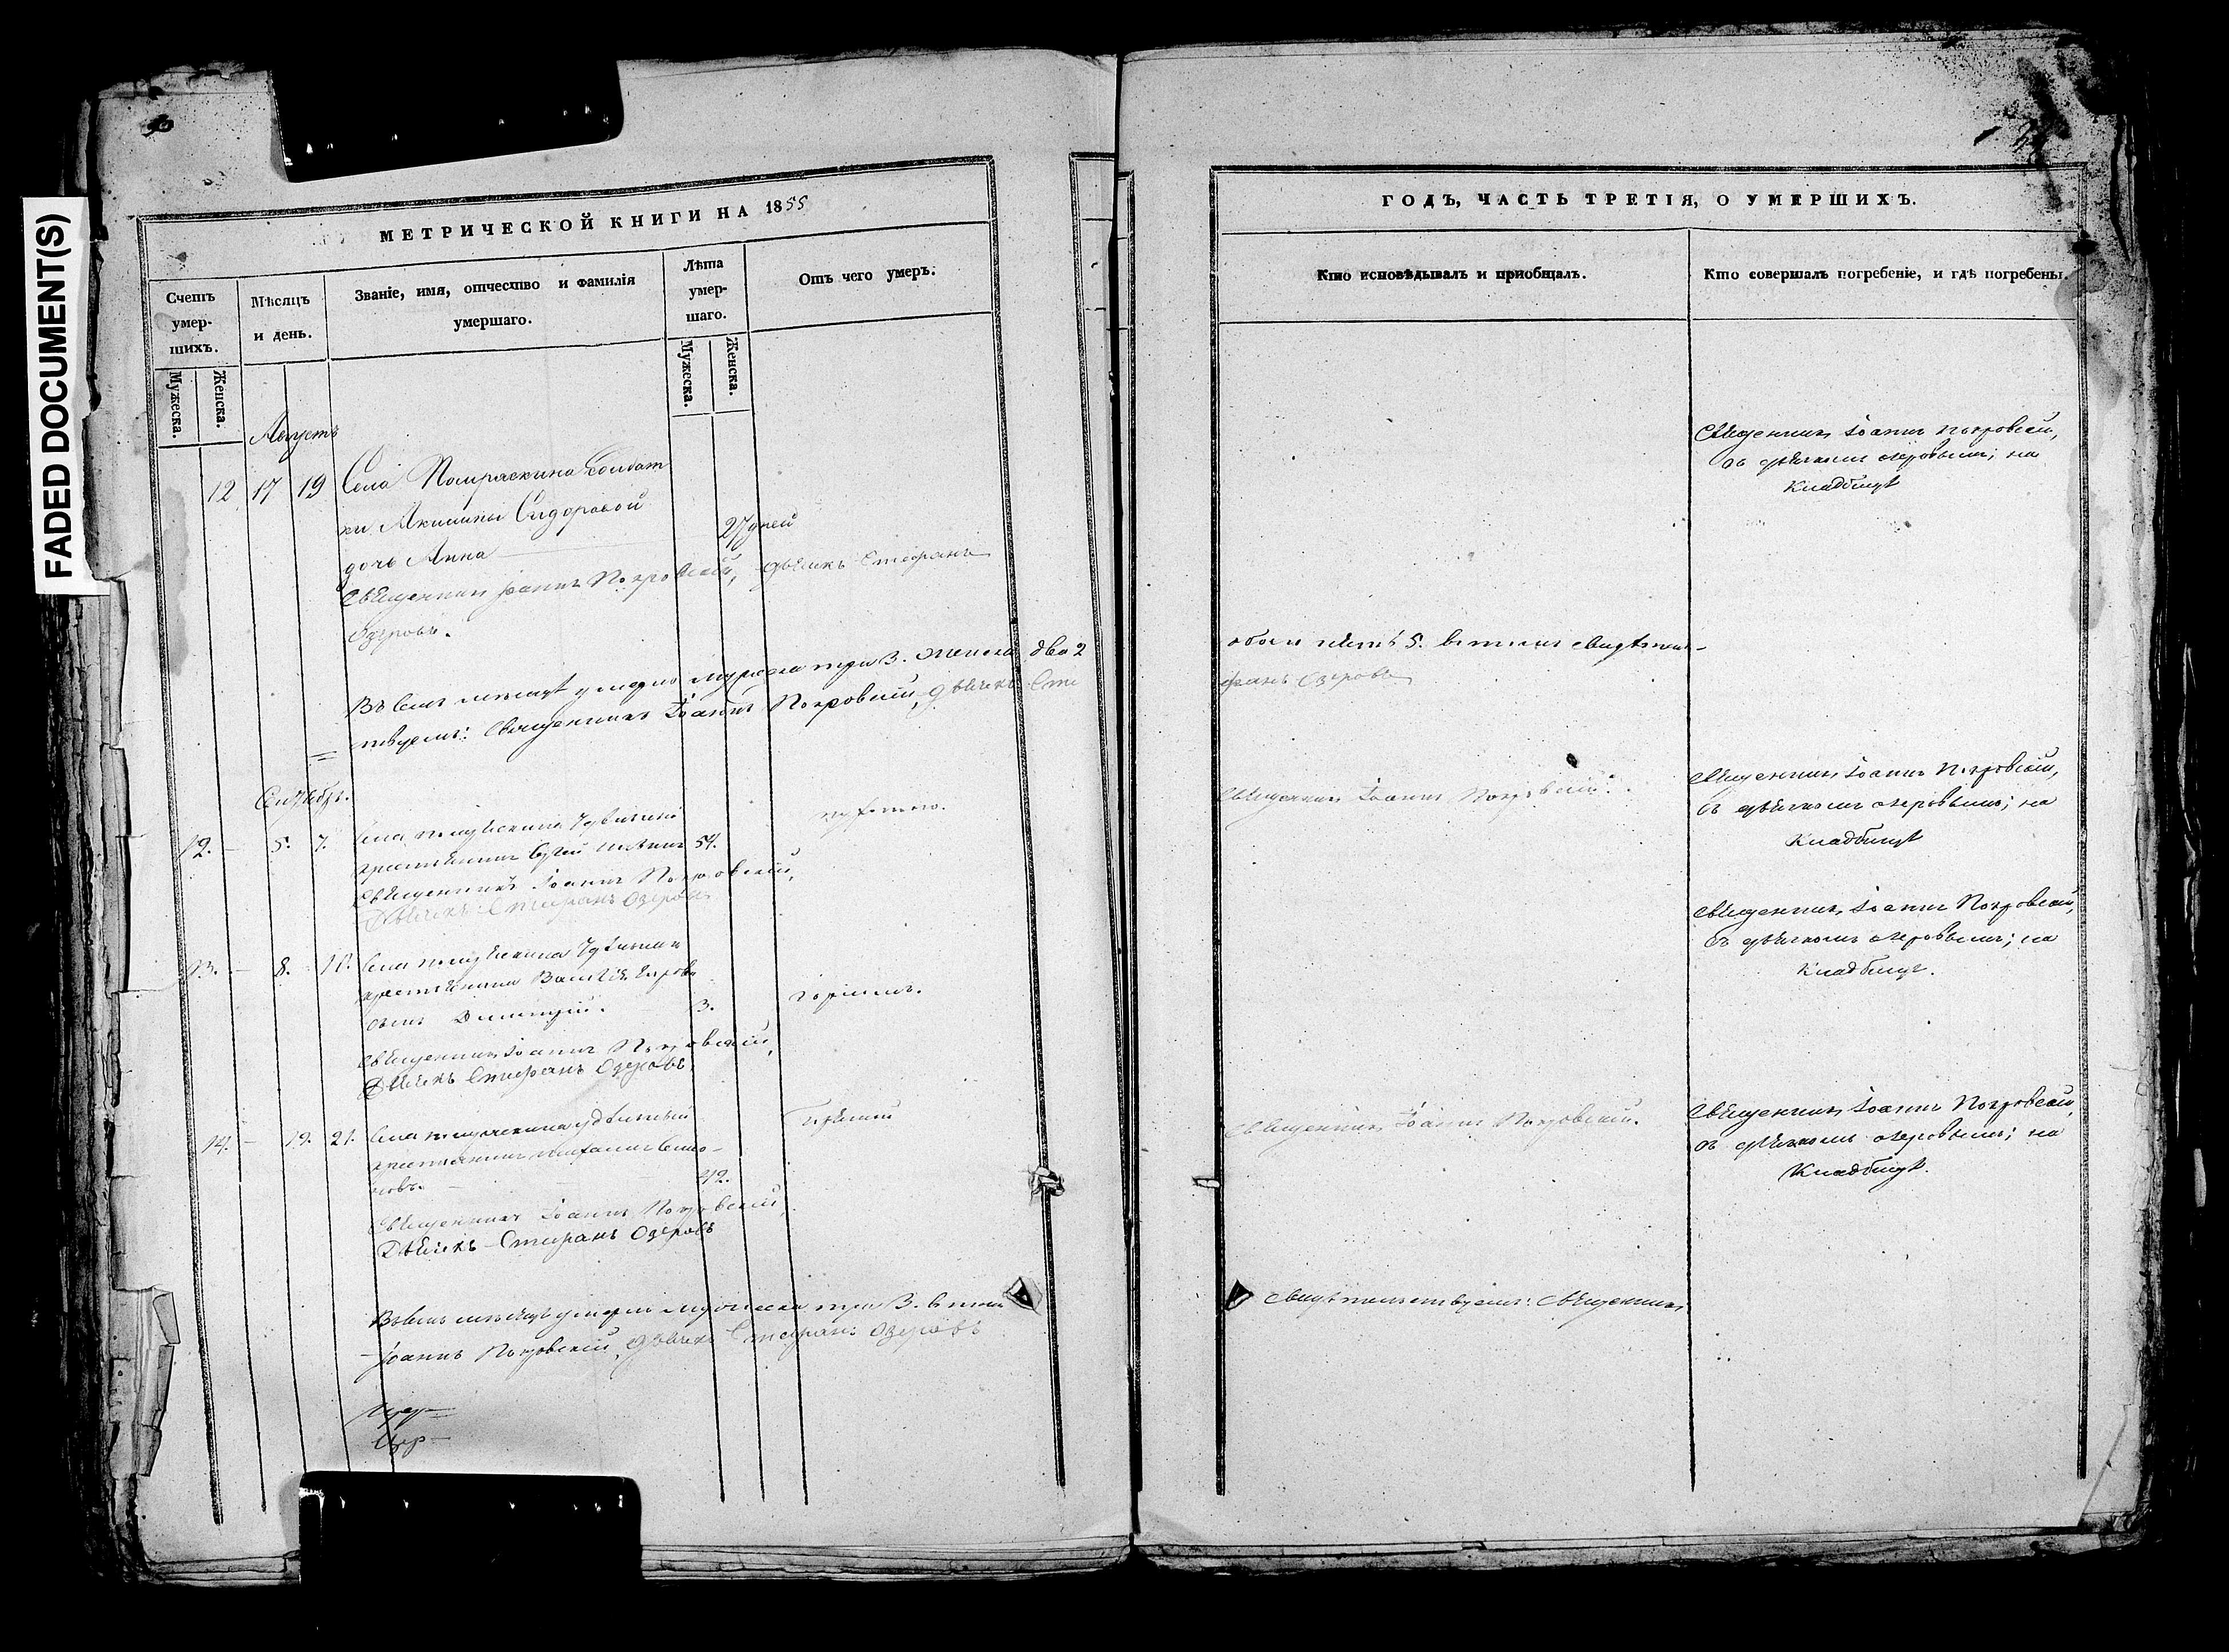 FADED DOCUMENT(S)
МЕТРИЧЕСКОЙ КНИГИ НА 1855
Счетъ умер-шихъ.
Мѣсяцъ и день.
Званіе, имя, отчество и фамилія умершаго.
Лѣта умер-шаго.
Отъ чего умеръ.
Мужеска.
Женска.
Мужеска.
Женска.
Августъ
12 17 19 Села Помряскина Солдат
ки Акилины Сидоровой
дочь Анна 27 дней
Священникъ Іоаннъ Покровскій, дьячекъ Стефанъ
Озеровъ.
Въ семъ мѣсяцѣ умерло мужеска три 3. женска два 2
твуемъ: Священникъ Іоаннъ Покровскій, дьячекъ Сте
Сентябрь.
12. 5. 7. Села
крестьянинъ 54.
Священникъ Іоаннъ Покровскій,
Дьячекъ Стефанъ Озеровъ
13. 8. 10. Села
сынъ Димитрій. 3. горячк.
Священникъ Іоаннъ Покровскій,
Дьячекъ Стефанъ Озеровъ
14. 19. 21. Села удѣльный
крестьянинъ
новъ. 42.
Священникъ Іоаннъ Покровскій,
Дьячекъ Стефанъ Озеровъ
Въ семъ мѣсяцѣ умерло мужеска три 3. в томъ
Іоаннъ Покровскій, дьячекъ Стефанъ Озеровъ
ГОДЪ, ЧАСТЬ ТРЕТІЯ, О УМЕРШИХЪ.
Кто исповѣдывалъ и пріобщалъ.
Кто совершалъ погребеніе, и гдѣ погребены.
Священникъ Іоаннъ Покровскій,
съ дьячкомъ Озеровымъ; на
Кладбищѣ
обоего пять 5. в томъ свидѣтель-
фанъ Озеровъ
Священникъ Іоаннъ Покровскій.
Священникъ Іоаннъ Покровскій,
съ дьячкомъ Озеровымъ; на
Кладбищѣ
Священникъ Іоаннъ Покровскій,
съ дьячкомъ Озеровымъ; на
Кладбищѣ.
Священникъ Іоаннъ Покровскій.
Священникъ Іоаннъ Покровскій,
съ дьячкомъ Озеровымъ; на
Кладбищѣ.
свидѣтельствуемъ: Священникъ